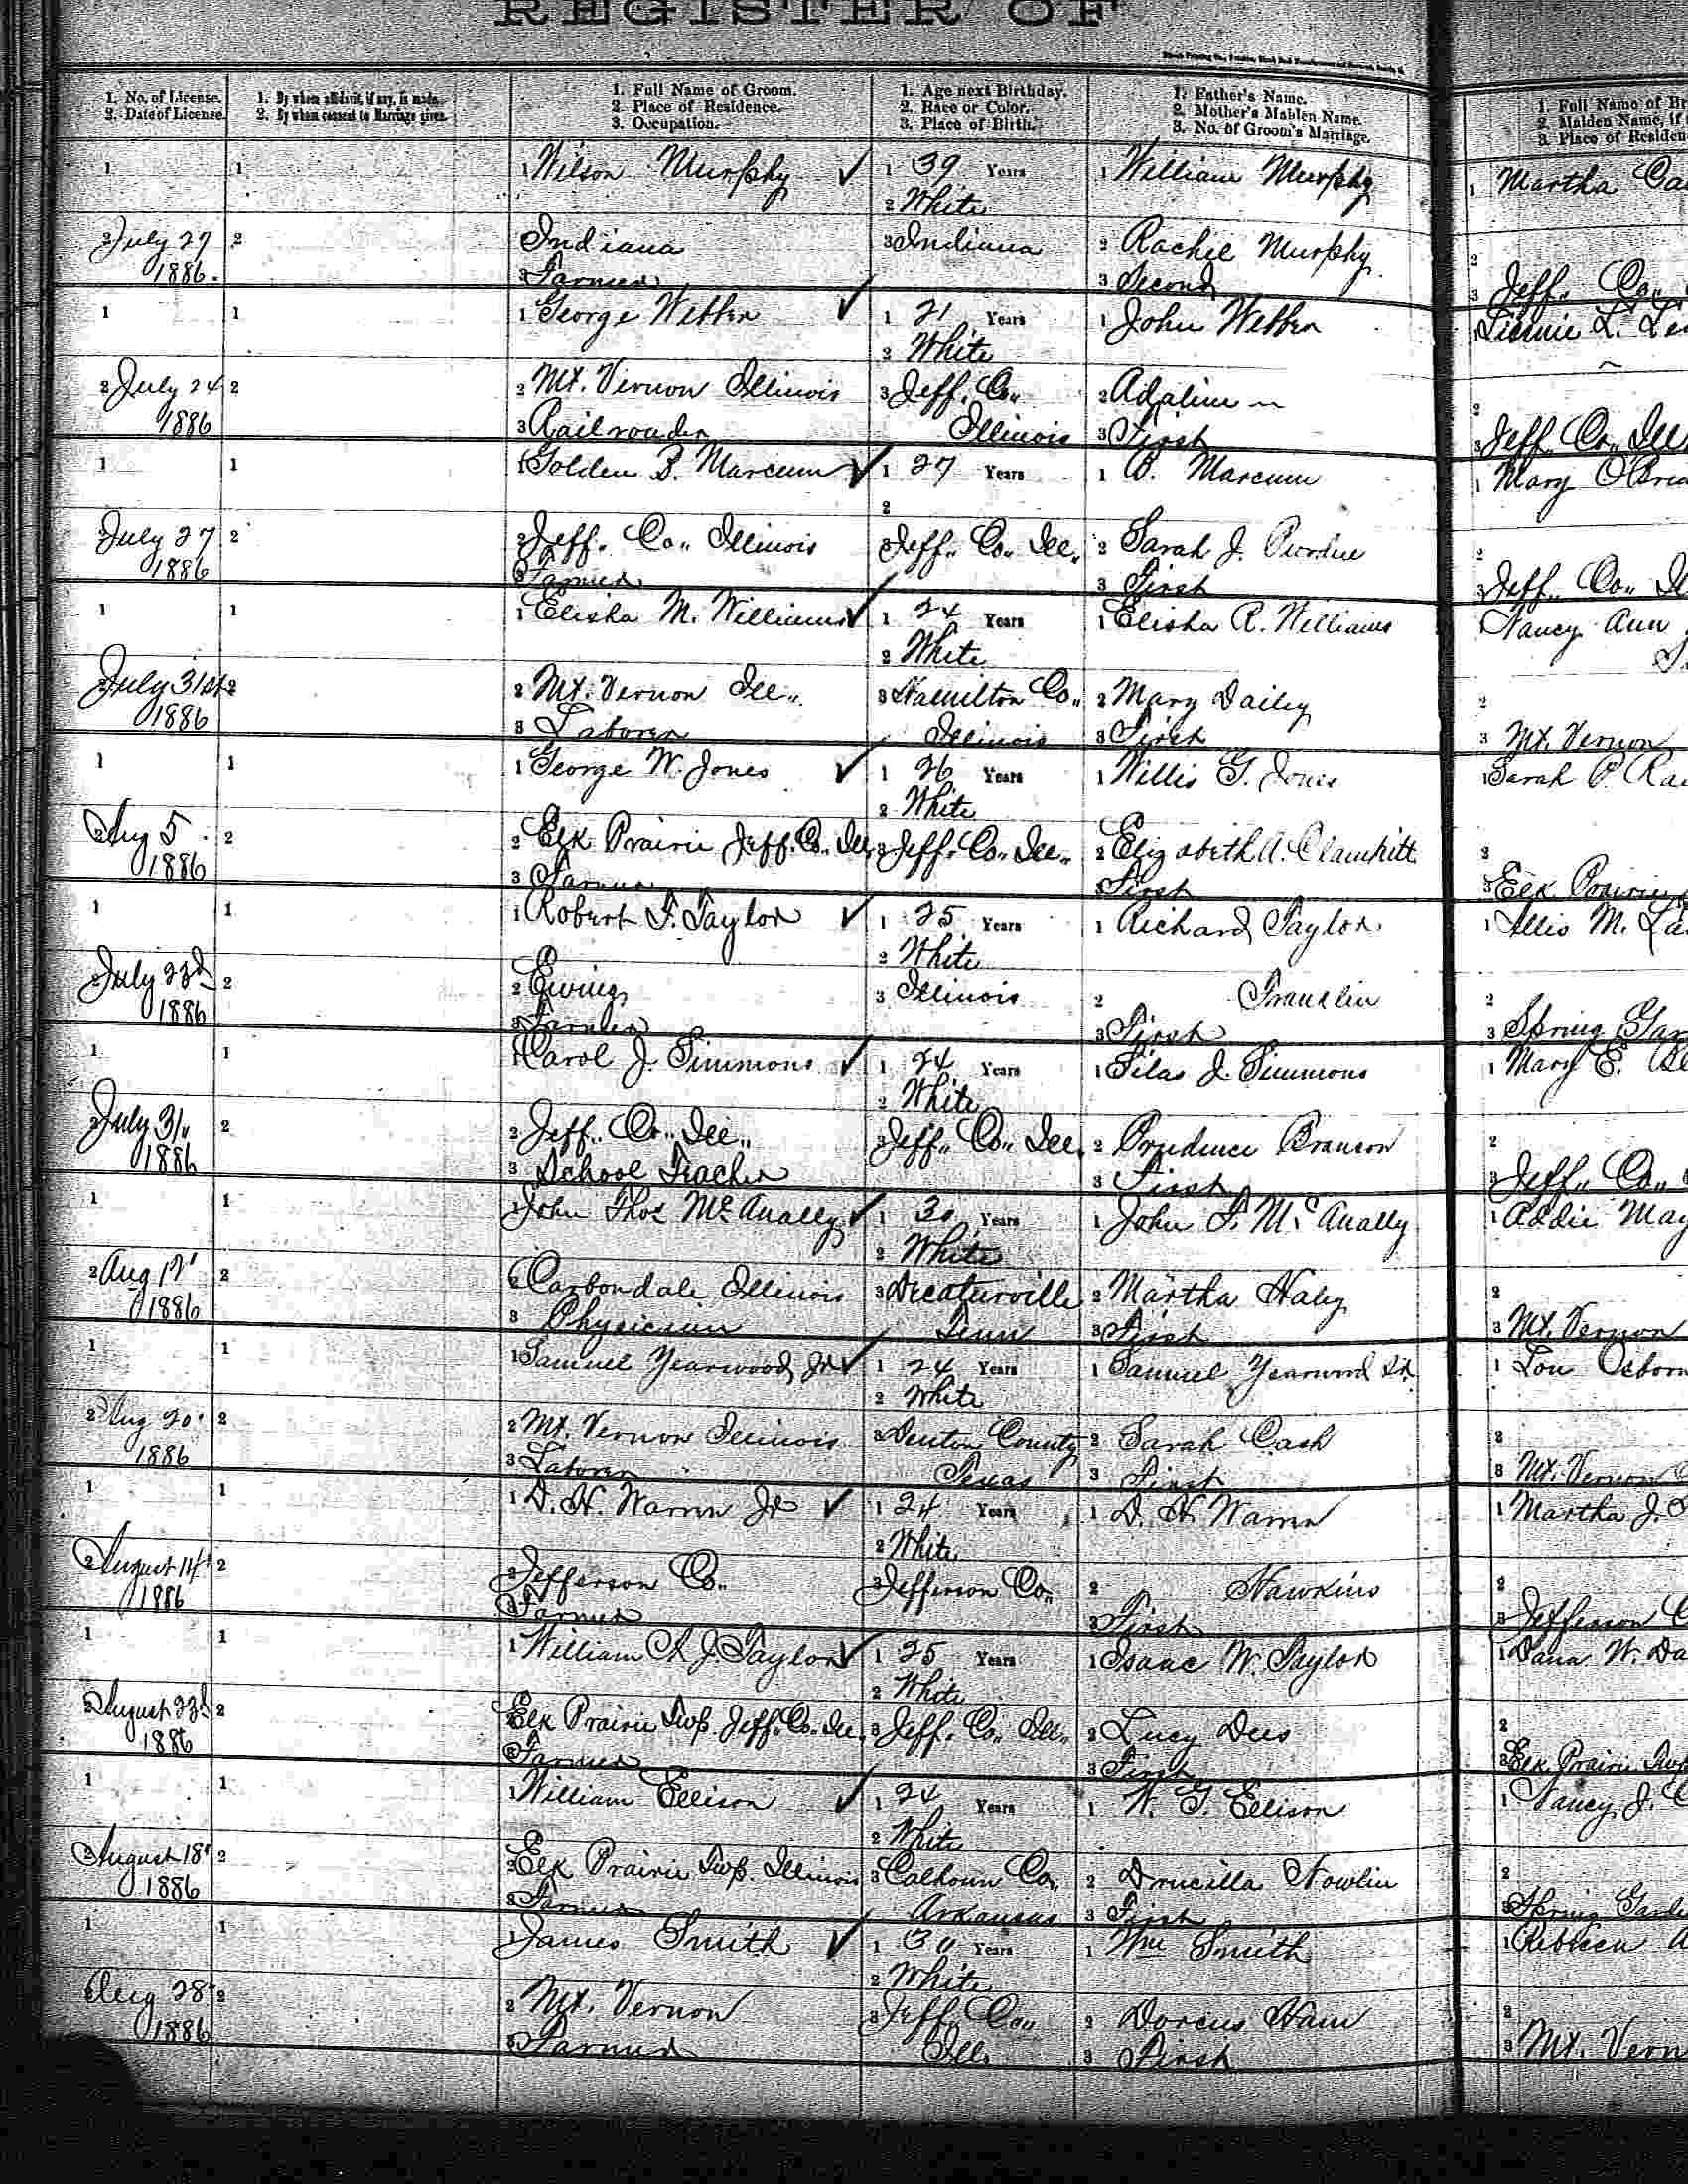 REGISTER OF
1. No. of License.
2. Date of License.
1. By whom affidavit, if any, is made.
2. By whom consent to Marriage given.
1. Full Name of Groom.
2. Place of Residence.
3. Occupation.
1. Age next Birthday.
2. Race or Color.
3. Place of Birth.
1. Father's Name.
2. Mother's Maiden Name.
3. No. of Groom's Marriage.
1. Full Name of Br
2. Maiden Name, if
3. Place of Residen
1 1 1 Wilson Murphy ✓ 1 39 Years 1 William Murphy 1 Martha
2 White
2 July 27 2 Indiana 3 Indiana 2 Rachel Murphy 2
1886. 3 Farmer 3 Second 3 Jeff. Co.
1 1 1 George Webber ✓ 1 21 Years 1 John Webber 1
2 White
2 July 24 2 2 Mt. Vernon Illinois 3 Jeff. Co. 2 Adaline ~ 2
1886 3 Railroader Illinois 3 First 3 Jeff. Co. Ill
1 1 1 Golden B. Marcum ✓ 1 27 Years 1 B. Marcum 1 Mary
2
July 27 2 2 Jeff. Co. Illinois 3 Jeff. Co. Ill. 2 Sarah J. Perdue 2
1886 3 Farmer 3 First 3 Jeff. Co. Il
1 1 1 Elisha M. Williams ✓ 1 24 Years 1 Elisha R. Williams 1 Nancy Ann
2 White
2 July 31st 2 2 Mt. Vernon Ill. 3 Hamilton Co. 2 Mary Dailey 2
1886 3 Laborer Illinois 3 First 3 Mt. Vernon
1 1 1 George W. Jones ✓ 1 26 Years 1 Willis G. Jones 1 Sarah
2 White
2 Aug 5 2 2 Elk Prairie Jeff. Co. Ill. 3 Jeff. Co. Ill. 2 Elizabeth A. 2
1886 3 Farmer 3 First 3 Elk Prairie
1 1 1 Robert F. Taylor ✓ 1 25 Years 1 Richard Taylor 1
2 White
2 July 23d 2 2 Ewing 3 Illinois 2 Franklin 2
1886 3 Farmer 3 First 3 Spring Gar
1 1 1 Carol J. Simmons ✓ 1 24 Years 1 Silas J. Simmons 1 Mary E.
2 White
2 July 31. 2 2 Jeff. Co. Ill. 3 Jeff. Co. Ill. 2 Prudence Branson 2
1886 3 School Teacher 3 First 3 Jeff. Co.
1 1 1 John Thos McAnally ✓ 1 30 Years 1 John F. McAnally 1 Addie May
2 White
2 Aug 12 2 2 Carbondale Illinois 3 Decaturville 2 Martha Haley 2
1886 3 Physician Tenn 3 First 3 Mt. Vernon
1 1 1 Samuel Yearwood Jr ✓ 1 24 Years 1 Samuel Yearwood Sr. 1 Lou Osborn
2 White
2 Aug 20 2 2 Mt. Vernon Illinois 3 Denton County 2 Sarah Cash 2
1886 3 Laborer Texas 3 First 3 Mt. Vernon
1 1 1 D. H. Warren Jr ✓ 1 24 Years 1 D. H. Warren 1 Martha J.
2 White
2 August 14 2 2 Jefferson Co. 3 Jefferson Co. 2 Hawkins 2
1886 3 Farmer 3 First 3 Jefferson C
1 1 1 William J. Taylor ✓ 1 25 Years 1 Isaac W. Taylor 1
2 White
2 August 23d 2 2 Elk Prairie Twp. Jeff. Co. Ill. 3 Jeff. Co. Ill. 2 Lucy Dees 2
1886 3 Farmer 3 First 3 Elk Prairie Twp
1 1 1 William Ellison ✓ 1 24 Years 1 W. G. Ellison 1 Nancy J.
2 White
2 August 18 2 2 Elk Prairie Twp. Illinois 3 Calhoun Co. 2 Drucilla Nowlin 2
1886 3 Farmer Arkansas 3 First 3 Spring Garde
1 1 1 James Smith ✓ 1 30 Years 1 Wm Smith 1
2 White
Aug 28 2 2 Mt. Vernon 3 Jeff. Co. 2 Dorcus Ham 2
1886 3 Farmer Ill. 3 First 3 Mt. Vern